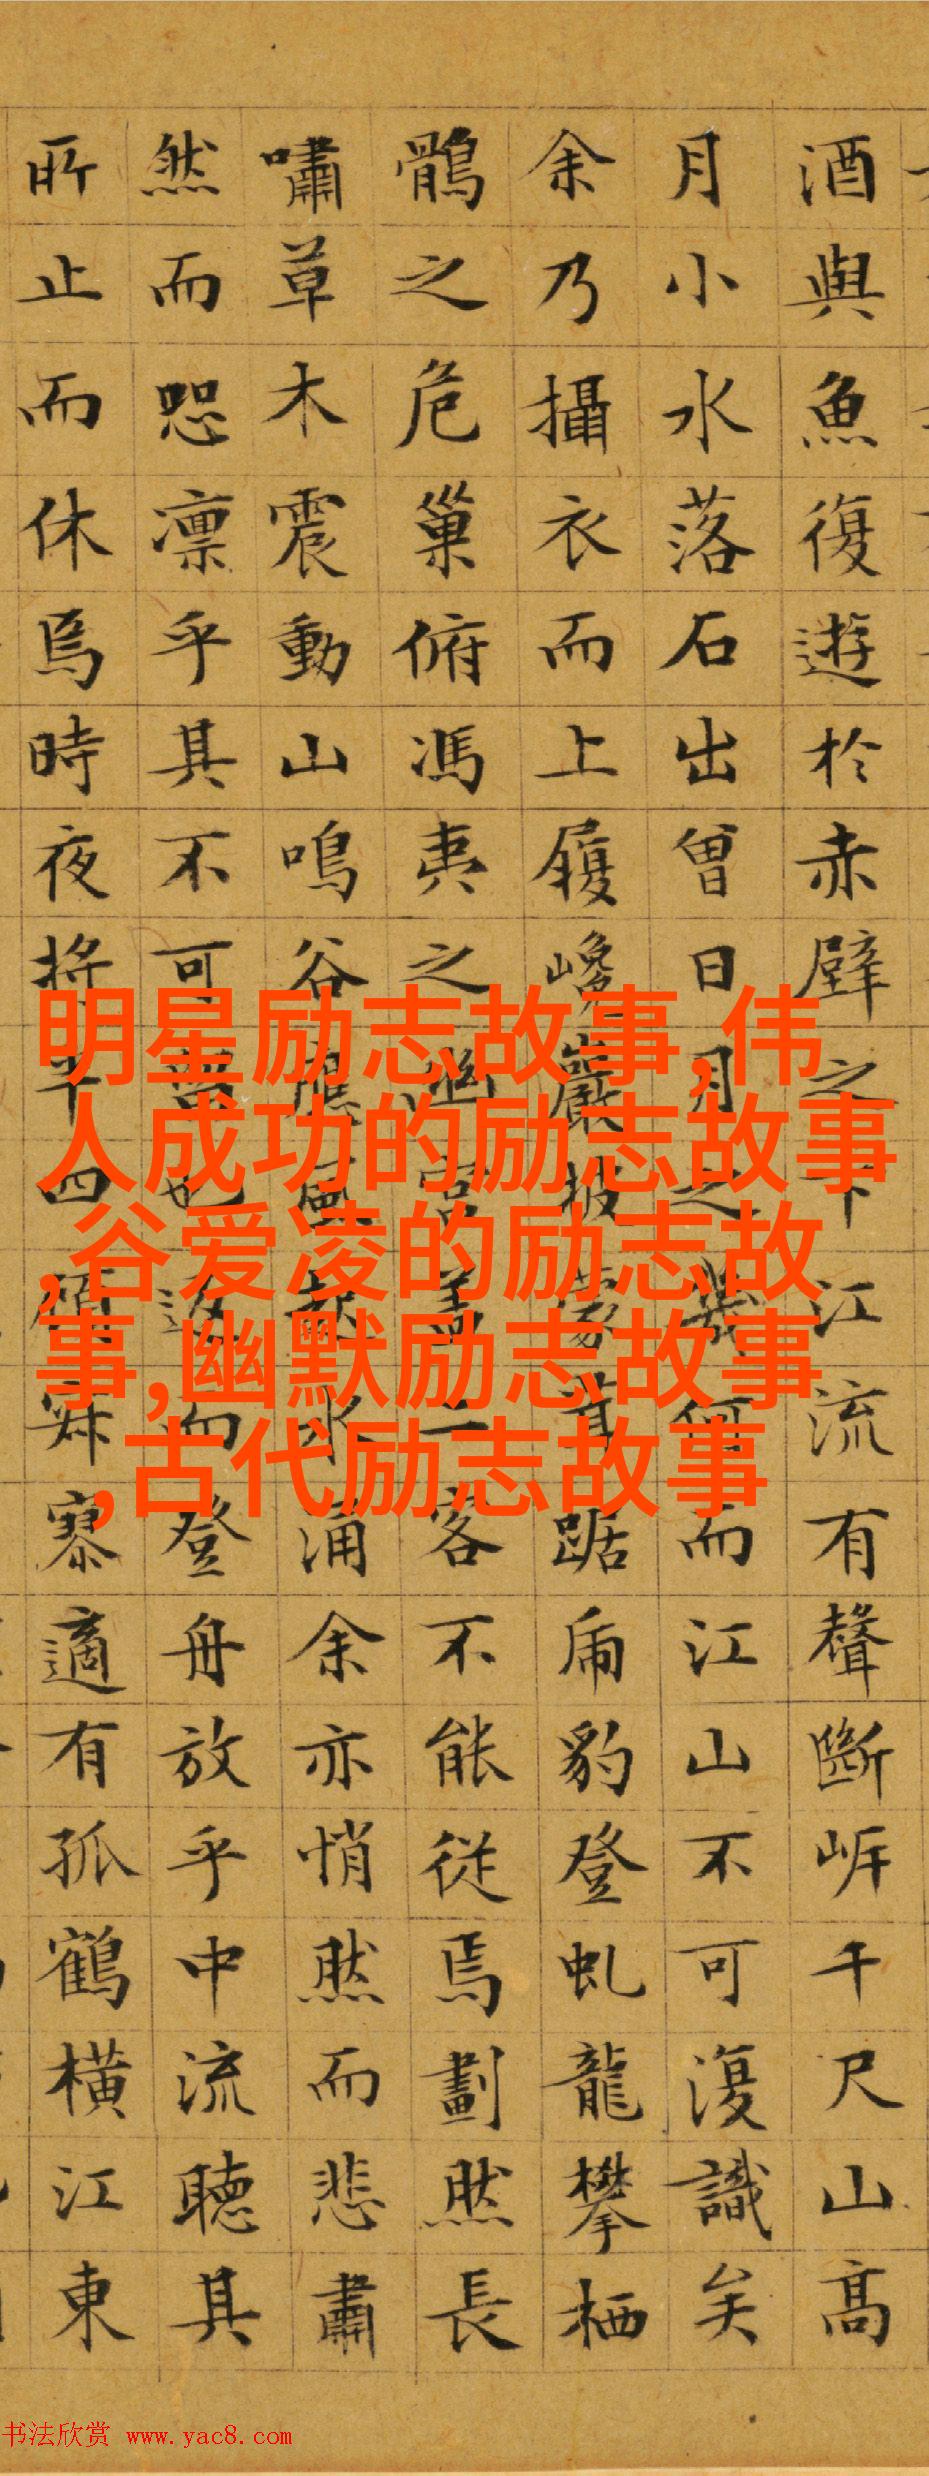 酒與魚復遊於赤壁之下江流有聲斷岸千尺山高
月小水落石出曾日月之幾何而江山不可復識矣
余乃攝衣而上履巉巖披蒙茸踞虎豹登虬龍攀栖
鶻之危巢俯馮夷之幽宮蓋二客不能從焉劃然長
嘯草木震動山鳴谷應風起水涌余亦悄然而悲肅
然而恐凛乎其不可留也返而登舟放乎中流聽其
所止而休焉時夜將半四顧寂寥適有孤鶴橫江東
明星励志故事,伟
人成功的励志故事
,谷爱凌的励志故
事,幽默励志故事
,古代励志故事
书法欣赏 www.yac8.com